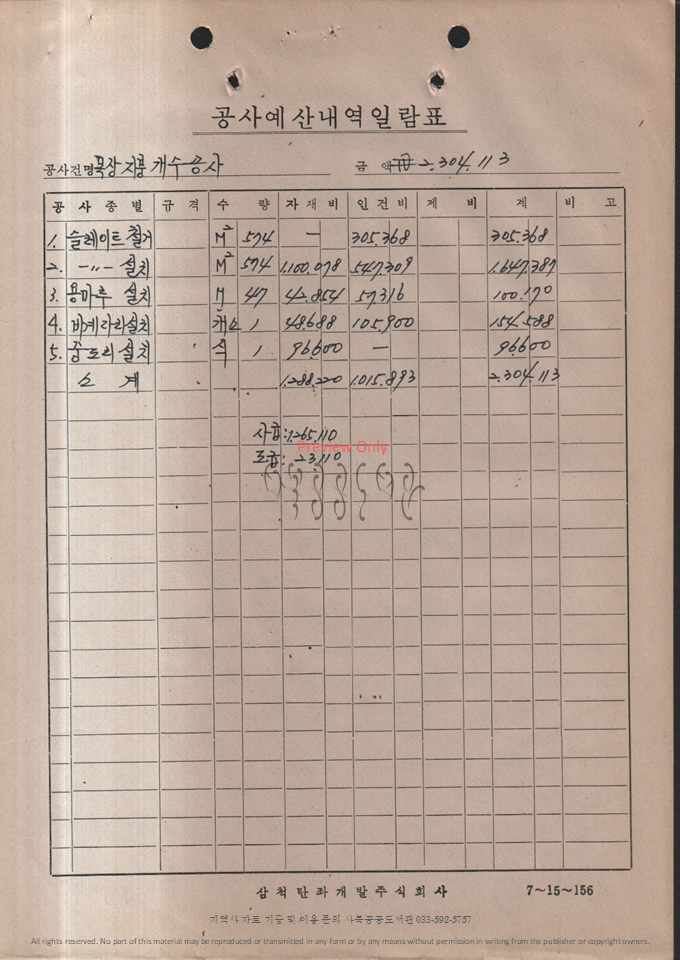 공사예산내역일람표
공사건명 목상 지붕 개수공사 금액 2.304.113
공사종별 규격 수량 자재비 인건비 제비 계 비고
1. 슬레이트 철거 M² 574 — 305.368 305.368
2. -〃- 설치 M² 574 1.100.078 547.309 1.647.387
3. 용마루 설치 M 47 42.854 57.316 100.170
4. 비계다리설치 개소 1 48.688 105.900 154.588
5. 중도리 설치 식 1 96.600 — 96.600
소계 1.288.220 1.015.893 2.304.113
사급: 1.265.110
Preview Only
도급: 23.110
삼척탄좌개발주식회사 7~15~156
지역사 자료 기증 및 이용 문의 사북공공도서관 033-592-5757
All rights reserved. No part of this material may be reproduced or transmitted in any form or by any means without permission in writing from the publisher or copyright owners.